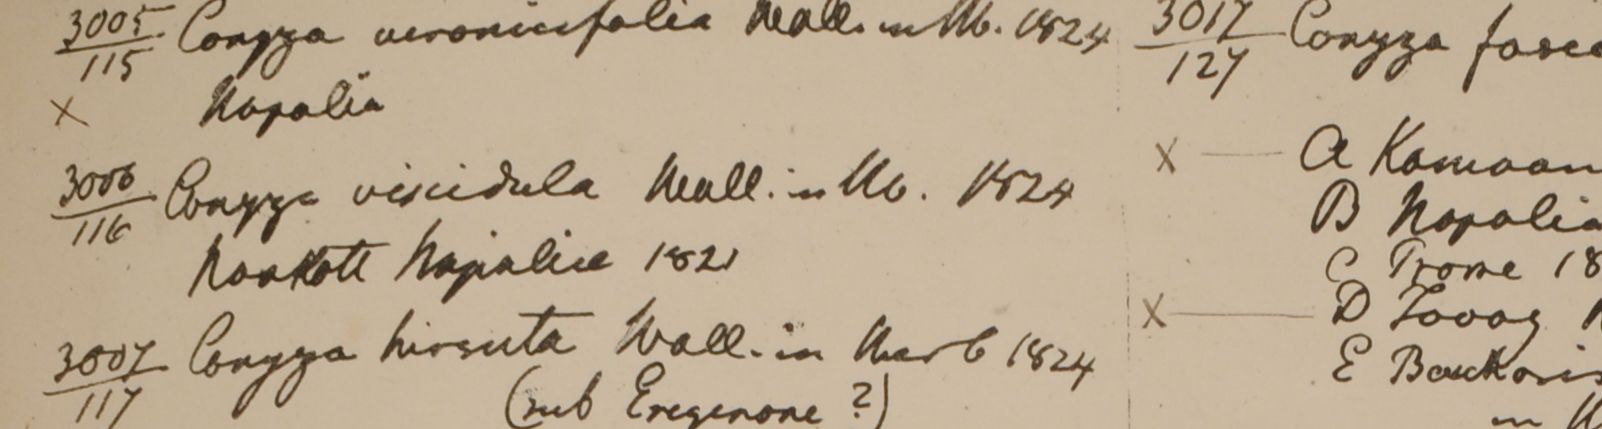 3005/115 Conyza veronicifolia Wall. in Hb. 1824
x Napalia
3006/116 Conyza viscidula Wall. in Hb. 1824
Noakote Napaliae 1821
3007/117 Conyza hirsuta Wall. in Herb 1824
(sub Eregenone ?)
3017/127 Conyza
x — A Kamaon
B Napalia
C Prome 18
x — D Tavoy
E
in